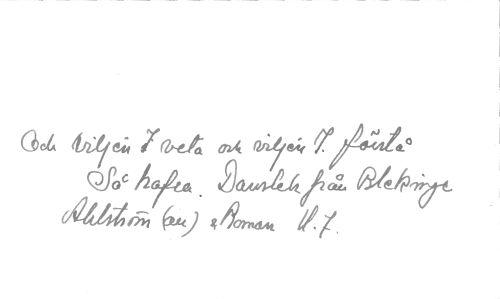 Och viljen I veta och viljen I. förstå
Så hafra. Danslek från Blekinge
Ahlström (arr) & Boman II. 7.